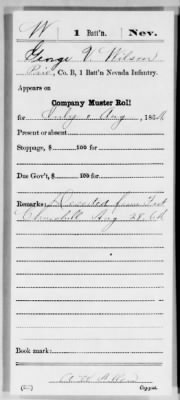 W 1 Batt'n. Nev.
George V. Wilson
Priv, Co. B, 1 Batt'n Nevada Infantry.
Appears on
Company Muster Roll
for July & Aug, 1864
Present or absent
Stoppage, $ 100 for
Due Gov't, $ 100 for
Remarks: Deserted from Fort
Churchill Aug 28, 64
Book mark:
Copyist.